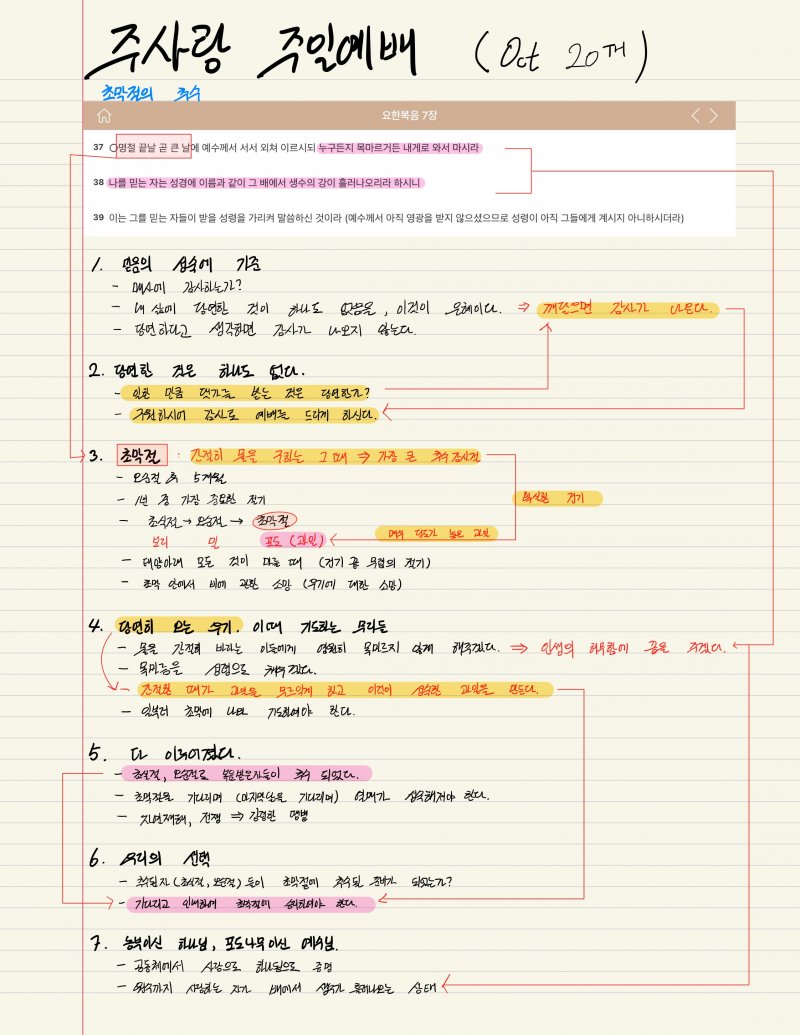 주사랑 주일예배 (Oct 20째)
초막절의 추수
요한복음 7장
37 ○명절 끝날 곧 큰 날에 예수께서 서서 외쳐 이르시되 누구든지 목마르거든 내게로 와서 마시라
38 나를 믿는 자는 성경에 이름과 같이 그 배에서 생수의 강이 흘러나오리라 하시니
39 이는 그를 믿는 자들이 받을 성령을 가리켜 말씀하신 것이라 (예수께서 아직 영광을 받지 않으셨으므로 성령이 아직 그들에게 계시지 아니하시더라)
1. 믿음의 성숙에 기준
- 매사에 감사하는가?
- 내 삶에 당연한 것이 하나도 없음을, 이것이 은혜이다. ⇒ 깨달으면 감사가 나온다.
- 당연하다고 생각하면 감사가 나오지 않는다.
2. 당연한 것은 하나도 없다.
- 일한 만큼 댓가를 받는 것은 당연한가?
- 구원하시어 감사로 예배를 드리게 하신다.
3. 초막절 : 간절히 물을 구하는 그 때 ⇒ 가장 큰 추수감사절
- 오순절 후 5개월
- 1년 중 가장 중요한 절기
확실한 절기
- 초실절 → 오순절 → 초막절
보리 밀 포도 (과일)
매우 당도가 높은 과일
- 태양아래 모든 것이 마를 때 (건기 끝 무렵의 절기)
- 초막 안에서 비에 관한 소망 (우기에 대한 소망)
4. 당연히 오는 우기. 이때 기도하는 무리들
- 물을 간절히 바라는 이들에게 영원히 목마르지 않게 해주겠다. ⇒ 인생의 허무함에 끝을 주겠다.
- 목마름을 성령으로 채우겠다.
- 간절할 때가 과일을 무르익게 하고 이것이 성숙한 과일을 만든다.
- 일부러 초막에 나와 기도하여야 한다.
5. 다 이루어졌다.
- 초실절, 오순절로 부르받은자들이 추수 되었다.
- 초막절을 기다리며 (마지막날을 기다리며) 열매가 성숙해져야 한다.
- 자연재해, 전쟁 ⇒ 강력한 명별
6. 우리의 선택
- 추수된자 (초실절, 오순절) 들이 초막절에 추수될 준비가 되었는가?
- 기다리고 인내하여 초막절이 승리하여야 한다.
7. 농부이신 하나님, 포도나무이신 예수님.
- 공동체에서 사랑으로 하나됨으로 증명
- 원수까지 사랑하는 자가 배에서 생수가 흘러나오는 상태